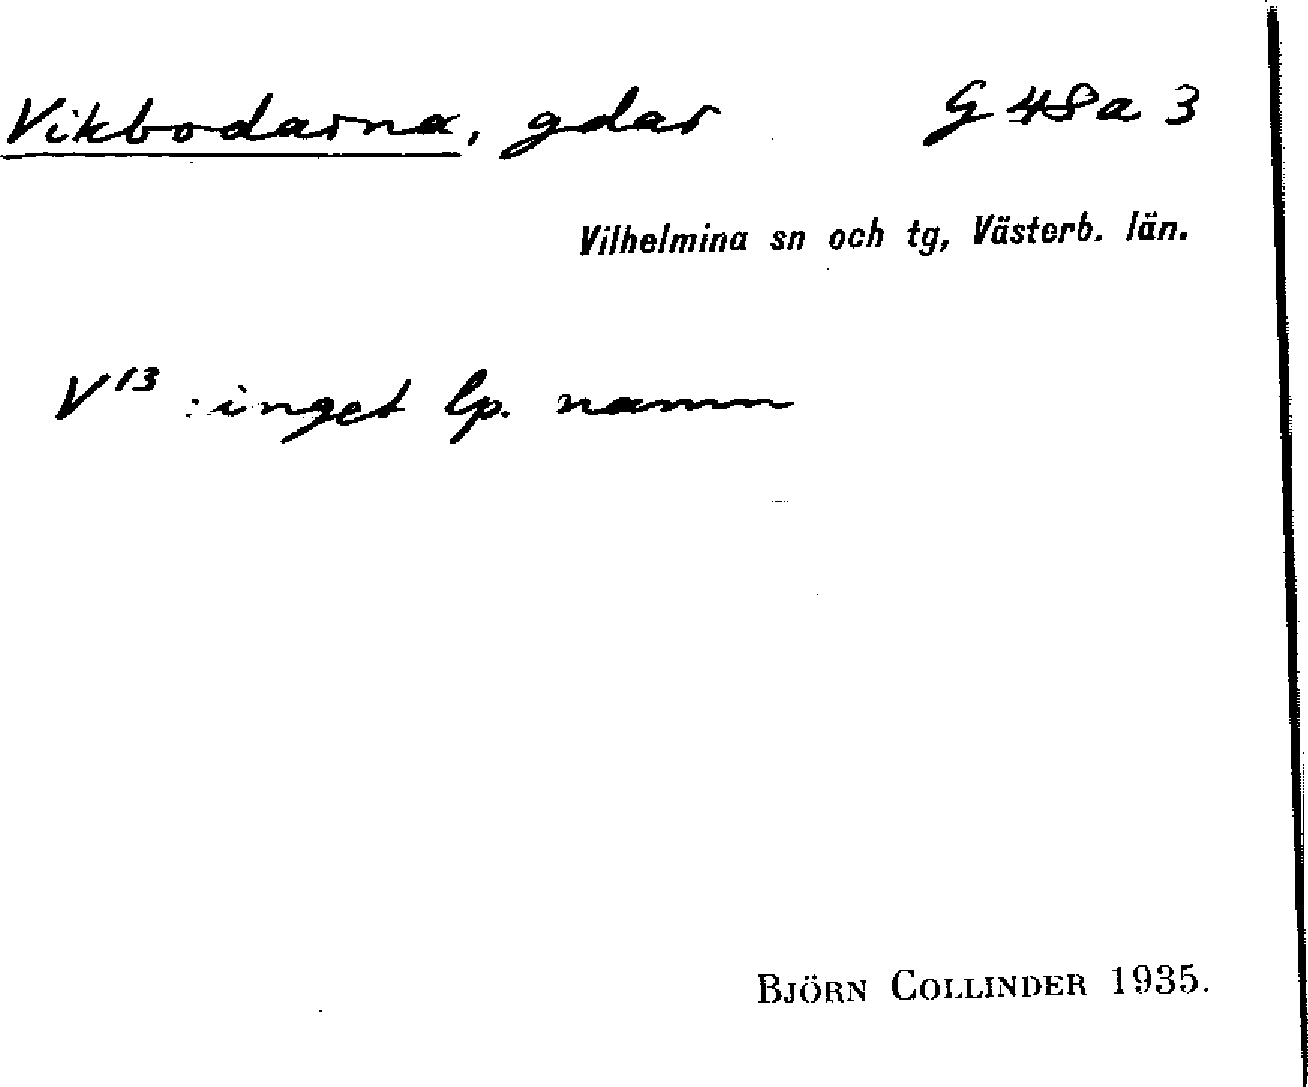 Vikbodarna, gdar G 48a 3
Vilhelmina sn och tg, Västerb. län.
V¹³ : inget lp. namn
BJÖRN COLLINDER 1935.